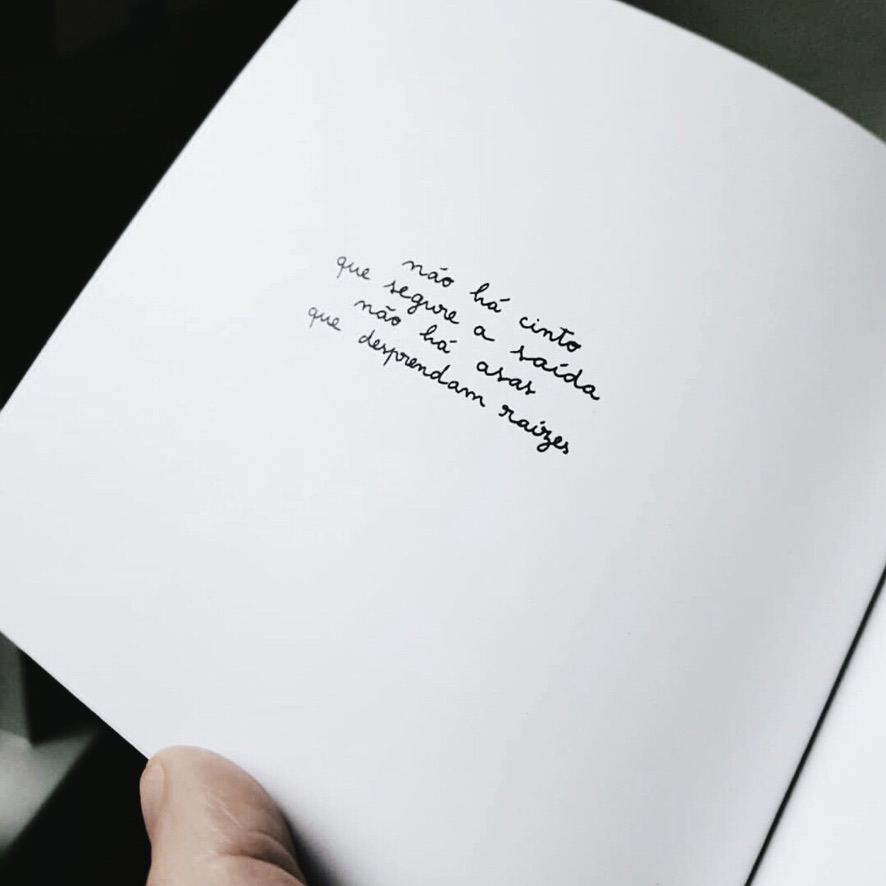 não há cinto
que segure a saída
não há asas
que desprendam raízes